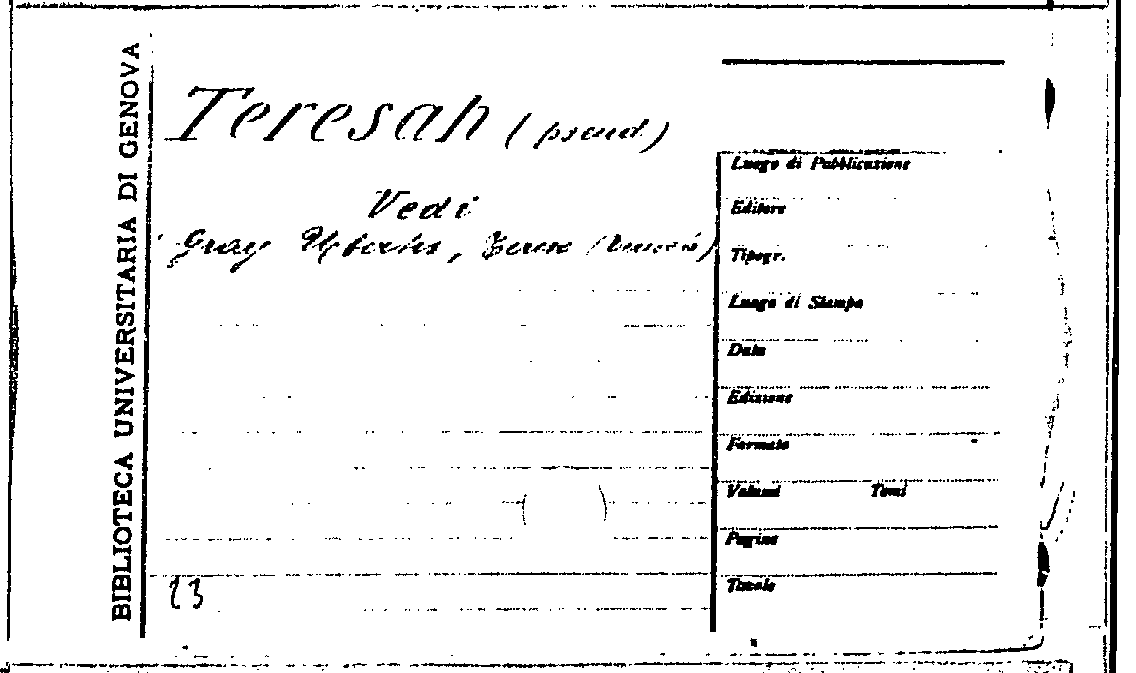 BIBLIOTECA UNIVERSITARIA DI GENOVA
Teresah (pseud)
Vedi
Gray Ubertis,
Luogo di Pubblicazione
Editore
Tipogr.
Luogo di Stampa
Data
Edizione
Formato
Volumi Tomi
Pagine
Tavole
( )
23